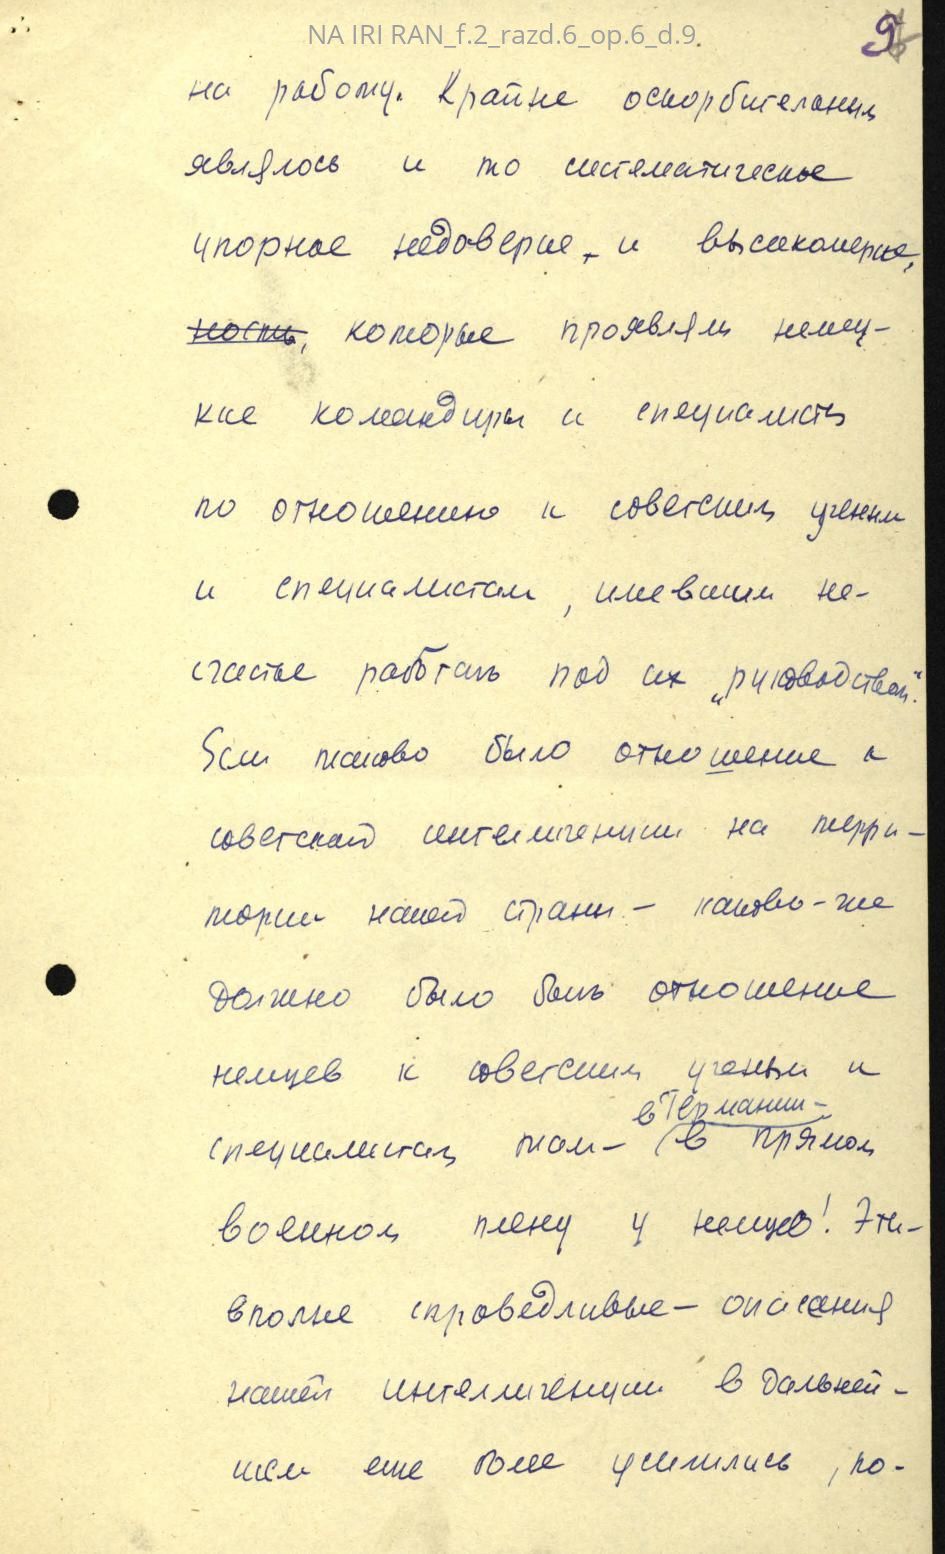 NA IRI RAN_f.2_razd.6_op.6_d.9.
9
на работу. Крайне оскорбительным
являлось и то систематическое
упорное недоверие, и высокомерие,
ность, которые проявляли немец-
кие командиры и специалисты
по отношению к советским ученым
и специалистам, имевшим не-
счастье работать под их „руководством“.
Если таково было отношение к
советской интеллигенции на терри-
тории нашей страны – каково-же
должно было быть отношение
немцев к советским ученым и
в Германии –
специалистам там – в прямом
военном плену у немцев! Эти –
вполне справедливые – опасения
нашей интеллигенции в дальней-
шем еще более усилились, по-